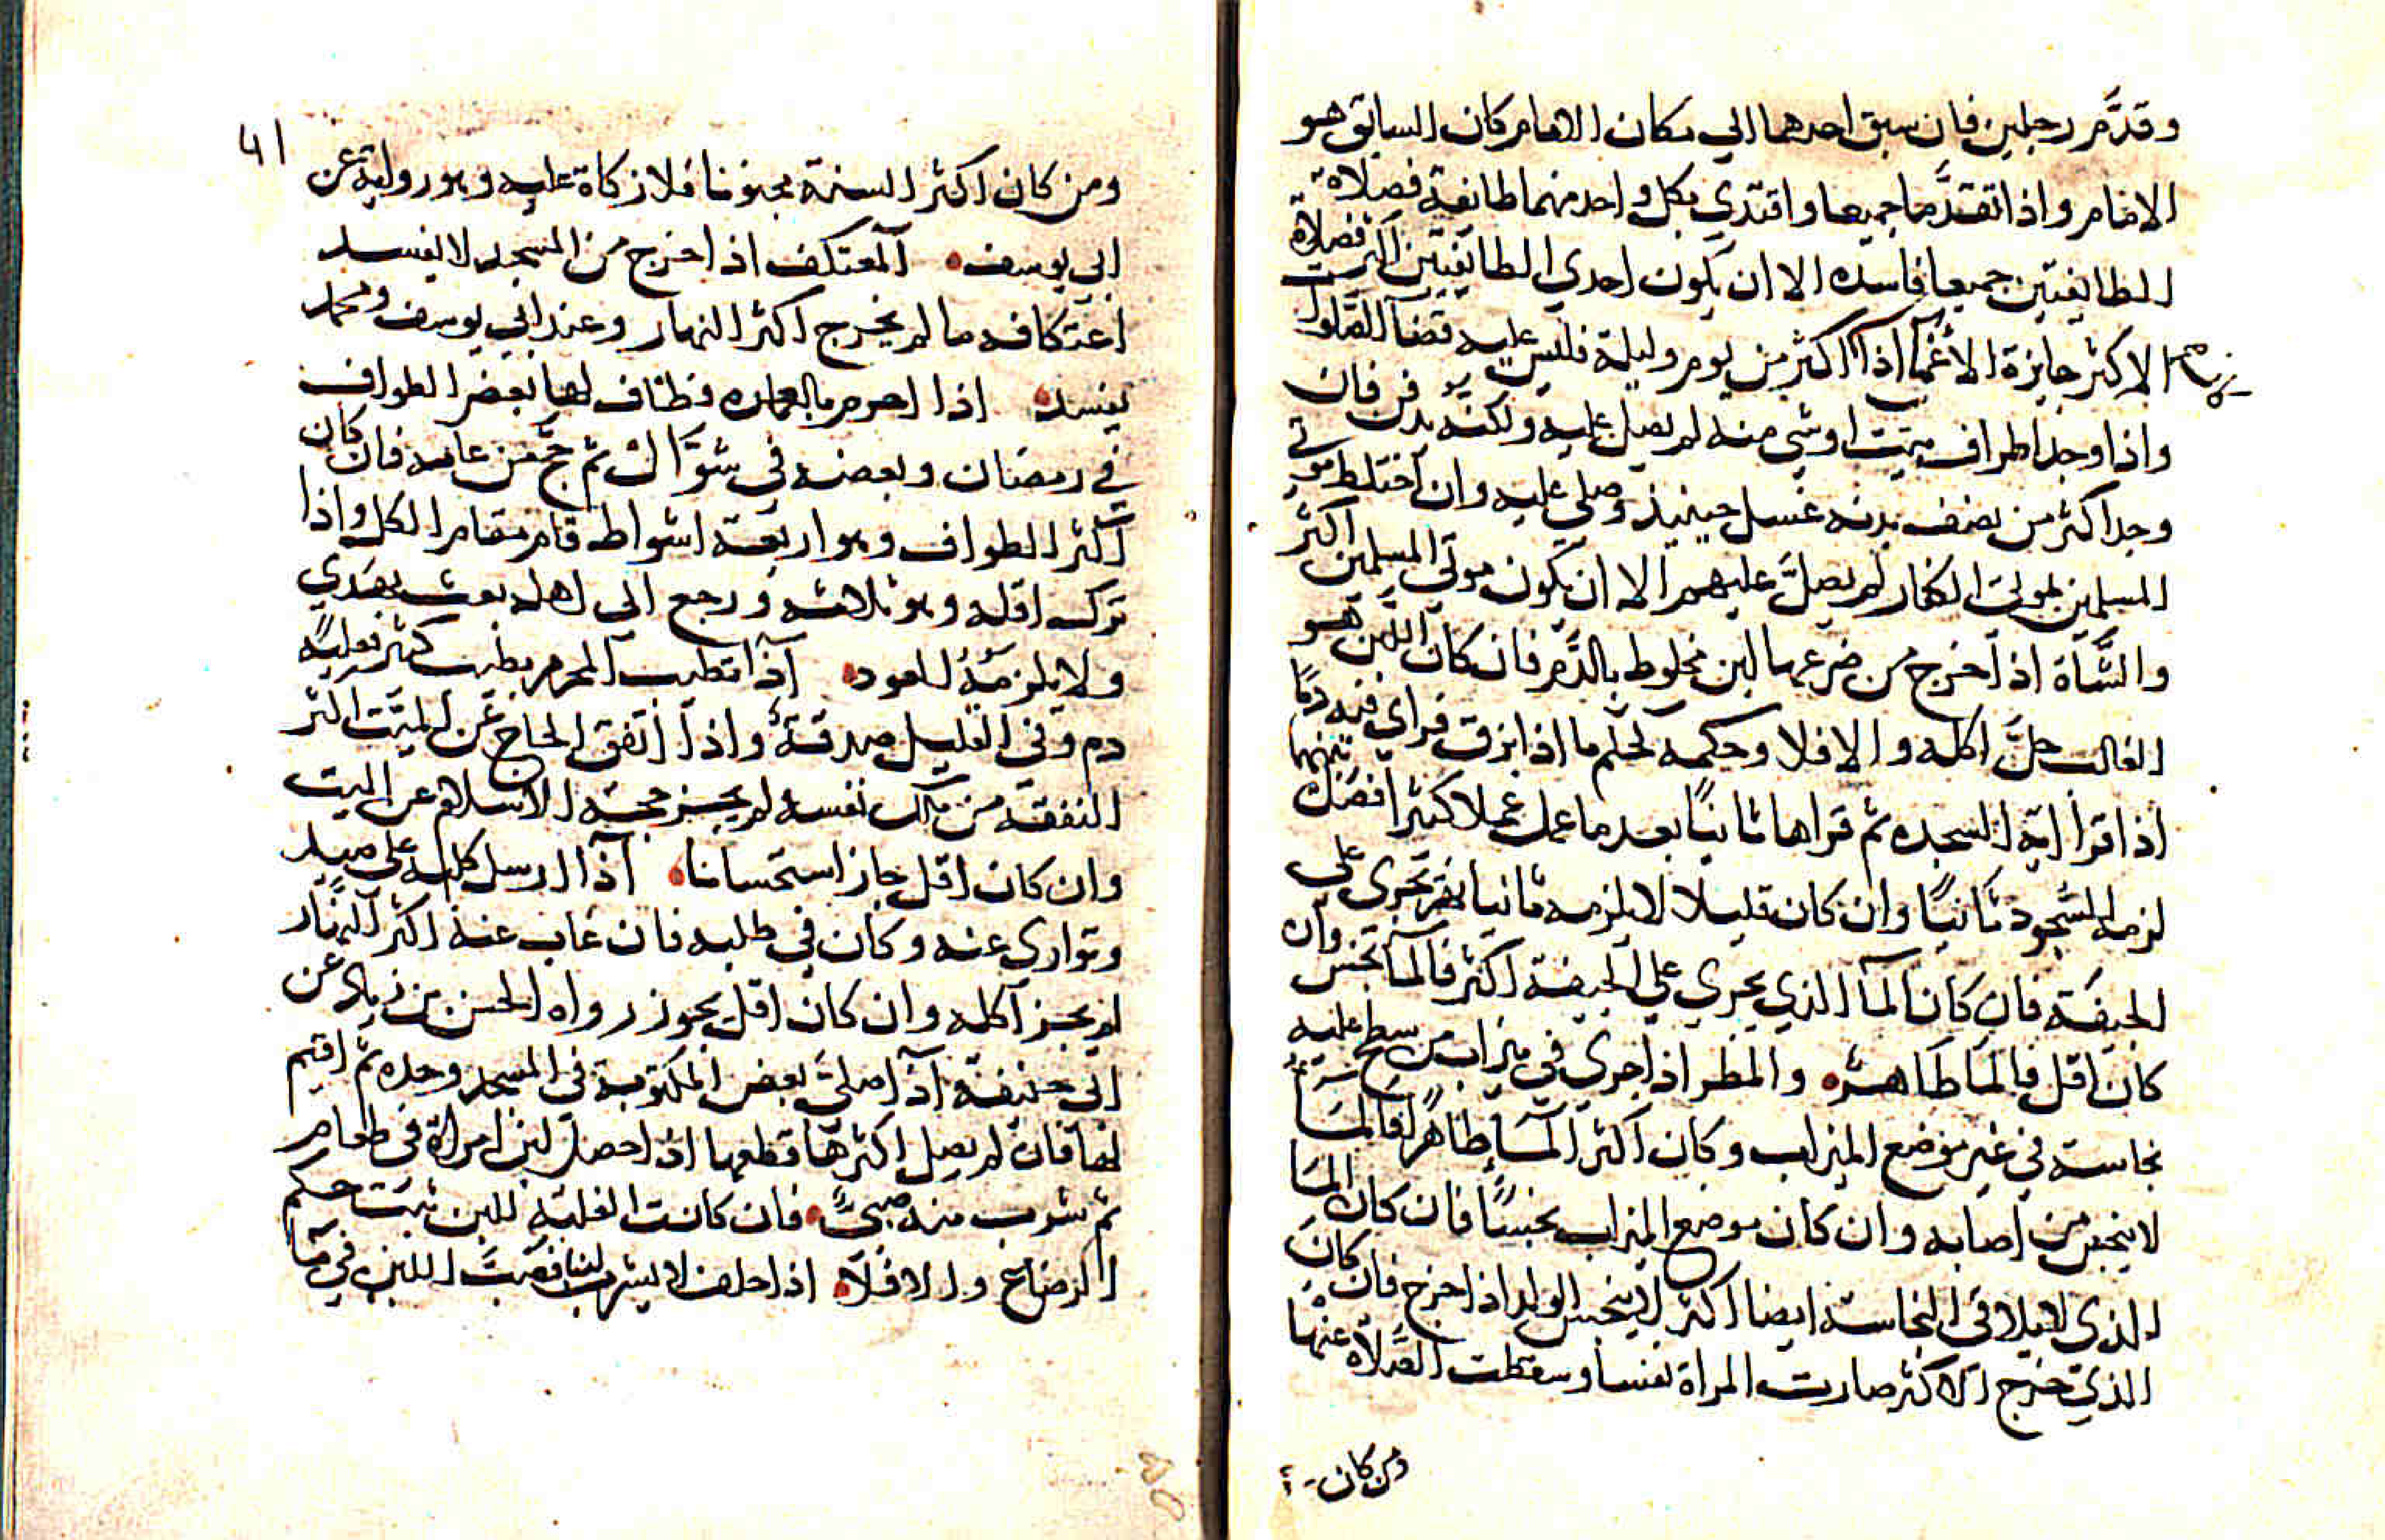 وقدَّم رجلين فان سبق احدهما الي مكان الامام كان السابق هو
الامام واذا تقدَّما جميعا واقتدي بكل واحد منهما طائفة فصلاة
الطايفتين جميعا فاسده الا ان يكون احدي الطايفتين اكثر فصلاة
الاكثر جايزة الاغمآ اذا اكثر من يوم وليلة فليس عليه قضآ الصلوات
واذا وجد اطراف ميت او شي منه لم يصل عليه ولكنه يدفن فان
وجد اكثر من نصف بدنه غسل حينيذ وصلي عليه وان اختلط موتي
المسلمين بموتى الكفار لم يصلَّ عليهم الا ان يكون موتى المسلمين اكثر
والشَّاة اذا خرج من ضرعها لبن مخلوط بالدَّم فان كان اللبن هو
الغالب حلَّ اكله والا فلا وحكمه كحكم ما اذا بزق فراي فيه دمًا
اذا قرا اية السجده ثم قراها ثانيًا بعد ما عمل عملا كثيرا فصل بينهما
لزمه السُّجود ثانيًا وان كان قليلا لا يلزمه ثانيا نهر يجرى على
الجيفة فان كان المآ الذي يجري علي الجيفة اكثر فالمآ نجس وان
كان اقل فالمآ طاهر والمطر اذا جري في ميزاب من سطح عليه
نجاسة في غير موضع الميزاب وكان اكثر المآ طاهرًا فالمآ
لا ينجس من اصابه وان كان موضع الميزاب نجسًا فان كان المآ
الذي لا يلاقى النجاسة ايضا اكثر لا ينجس الولد اذا خرج فان كان
الذي خرج الاكثر صارت المراة نفسا وسقطت الصَّلاة عنها
ومن كان
٤١
ومن كان اكثر السنة مجنونا فلا زكاة عليه وهو رواية عن
ابي يوسف المعتكف اذا خرج من المسجد لا يفسد
اعتكافه ما لم يخرج اكثر النهار وعند ابي يوسف ومحمد
يفسد اذا احرم بالعمره فطاف لها بعض الطواف
في رمضان وبعضه في شوّال ثم حج من عامه فان كان
اكثر الطواف وهو اربعة اشواط قام مقام الكل واذا
ترك اقله وهو ثلاثه ورجع الى اهله بعث بهدي
ولا يلزمه العود اذا تطيب المحرم بطيب كثير فعليه
دم وفى القليل صدقة واذا انفق الحاج عن الميّت اكثر
النفقة من مال نفسه لم يجز حجة الاسلام عن الميت
وان كان اقل جاز استحسانا اذا ارسل كلبه على صيد
وتوارى عنه وكان في طلبه فان غاب عنه اكثر النهار
لم يجز اكله وان كان اقل يجوز رواه الحسن بن زياد عن
ابى حنيفة اذا صلى بعض المكتوبة في المسجد وحده ثم اقيم
لها فان لم يصل اكثرها قطعها اذا حصل لبن امراة في طعام
ثم شرب منه صبىٌّ فان كانت الغلبة للبن ثبت حكم
الرضاع والا فلا اذا حلف لا يشرب لبنا فصبّ اللبن في مآ